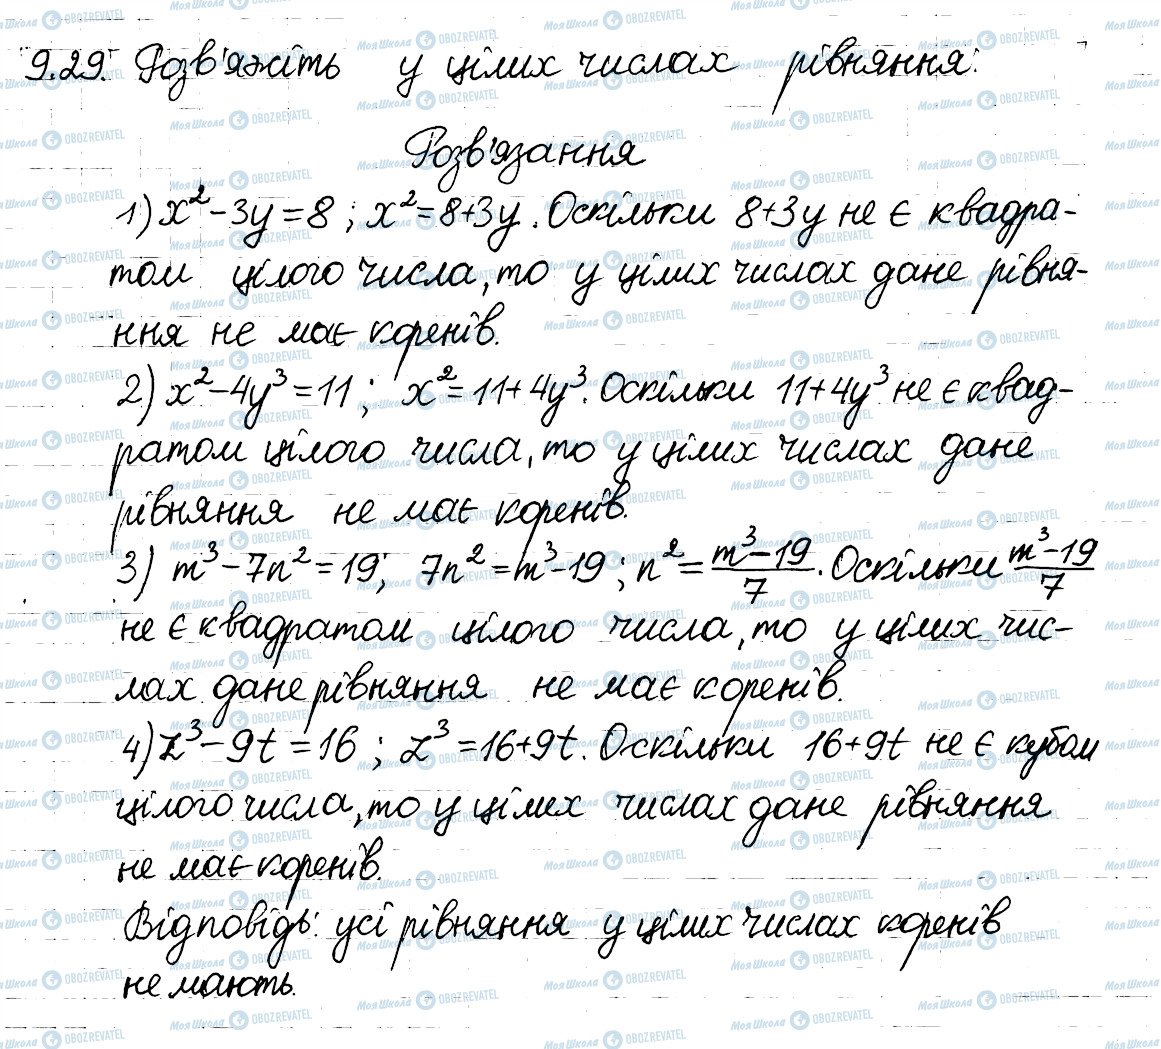 9.29. Розв'яжіть у цілих числах рівняння:
Розв'язання
1) x² - 3y = 8; x² = 8 + 3y. Оскільки 8 + 3y не є квадра-
том цілого числа, то у цілих числах дане рівня-
ння не має коренів.
2) x² - 4y³ = 11; x² = 11 + 4y³. Оскільки 11 + 4y³ не є квад-
ратом цілого числа, то у цілих числах дане
рівняння не має коренів.
3) m³ - 7n² = 19; 7n² = m³ - 19; n² = (m³ - 19)/7. Оскільки (m³ - 19)/7
не є квадратом цілого числа, то у цілих чис-
лах дане рівняння не має коренів.
4) z³ - 9t = 16; z³ = 16 + 9t. Оскільки 16 + 9t не є кубом
цілого числа, то у цілих числах дане рівняння
не має коренів.
Відповідь: усі рівняння у цілих числах коренів
не мають.
Моя Школа OBOZREVATEL